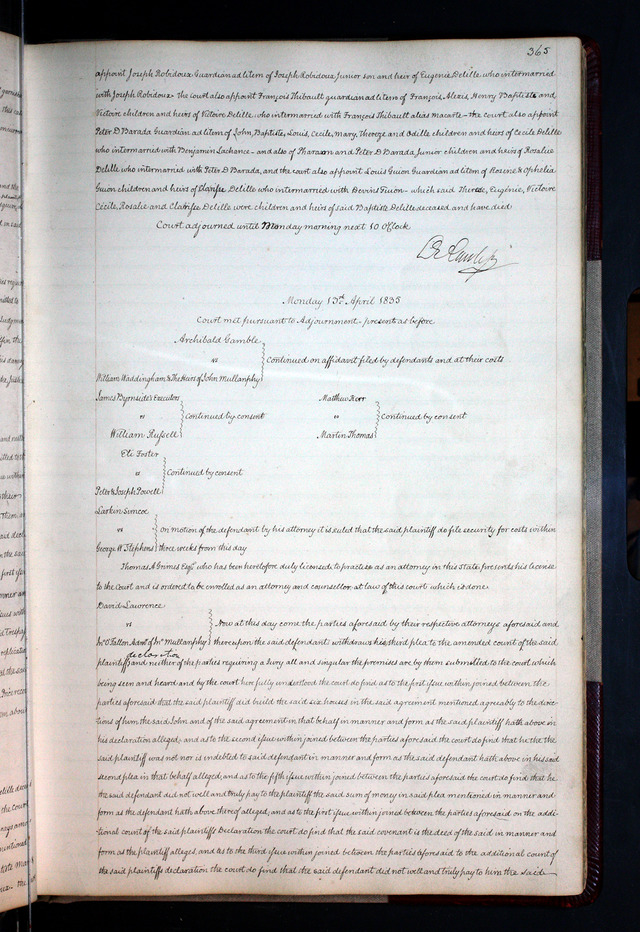 365
appoint Joseph Robidoux Guardian ad litem of Joseph Robidoux Junior son and heir of Eugenie Delille who intermarried
with Joseph Robidoux – the court also appoint François Thibault guardian ad litem of François, Alexis, Henry Baptiste and
Victoire children and heirs of Victoire Delille who intermarried with François Thibault alias macarte – the court also appoint
Peter D Barada Guardian ad litem of John, Baptiste, Louis, Cecile, Mary, Therese and Odille children and heirs of Cecile Delille
who intermarried with Benjamin Lachance – and also of Pharaon and Peter D Barada Junior children and heirs of Rosalie
Delille who intermarried with Peter D Barada, and the court also appoint Louis Guion Guardian ad litem of & Ophelia
Guion children and heirs of Clarisse Delille who intermarried with Guion – which said Therese, Eugenie, Victoire
Cecile, Rosalie and Clarisse Delille were children and heirs of said Baptiste Delille deceased and have died
Court adjourned until Monday morning next 10 OClock
Monday 13th April 1835
Court met pursuant to Adjournment – present as before
Archibald Gamble
vs
Continued on affidavit filed by defendants and at their costs
William Waddingham & The Heirs of John Mullanphy
James Byrnside's Executors
vs
Continued by consent
William Russell
Matthew Kerr
vs
Continued by consent
Martin Thomas
Eli Foster
vs
Continued by consent
Peter & Joseph Powell
Larkin Simcoe
vs
on motion of the defendant by his attorney it is ruled that the said plaintiff do file security for costs within
George W Stephens three weeks from this day
Thomas A Grimes Esqr who has been heretofore duly licensed to practise as an attorney in this State presents his license
to the Court and is ordered to be enrolled as an attorney and counsellor at law of this court which is done
David Lawrence
vs
Now at this day come the parties aforesaid by their respective attorneys aforesaid and
Jno O'Fallon Admr of Jno Mullanphy thereupon the said defendant withdraws his third plea to the amended count of the said
declaration
plaintiffs and neither of the parties requiring a Jury all and singular the premises are by them submitted to the court which
being seen and heard and by the court here fully understood the court do find as to the first issue within joined between the
parties aforesaid that the said plaintiff did build the said six houses in the said agreement mentioned agreeably to the direc-
tions of him the said John and of the said agreement in that behalf in manner and form as the said plaintiff hath above in
his declaration alleged, and as to the second issue within joined between the parties aforesaid the court do find that he the the
said plaintiff was not nor is indebted to said defendant in manner and form as the said defendant hath above in his said
second plea in that behalf alleged, and as to the fifth issue within joined between the parties aforesaid the court do find that he
the said defendant did not well and truly pay to the plaintiff the said sum of money in said plea mentioned in manner and
form as the defendant hath above thereof alleged, and as to the first issue within joined between the parties aforesaid on the addi-
tional count of the said plaintiffs Declaration the court do find that the said covenant is the deed of the said in manner and
form as the plaintiff alleged and as to the third issue within joined between the parties aforesaid to the additional count of
the said plaintiffs declaration the court do find that the said defendant did not well and truly pay to him the said